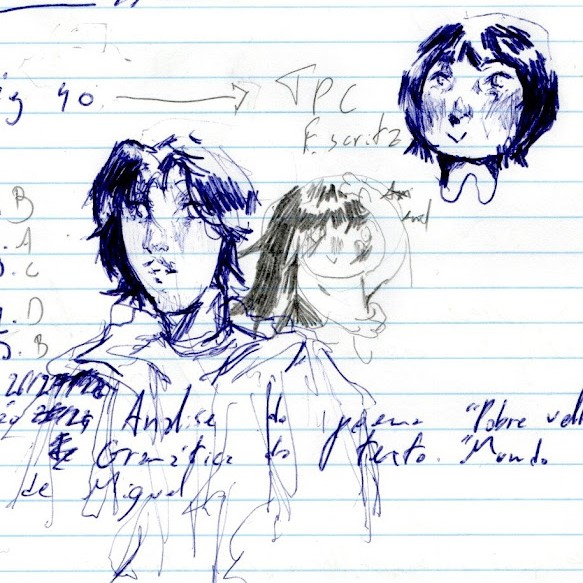 g 40 → TPC
Escrita
B
A
C
D
B
Análise do poema "Pobre velh
Gramática do texto. "Mundo
de Miguel